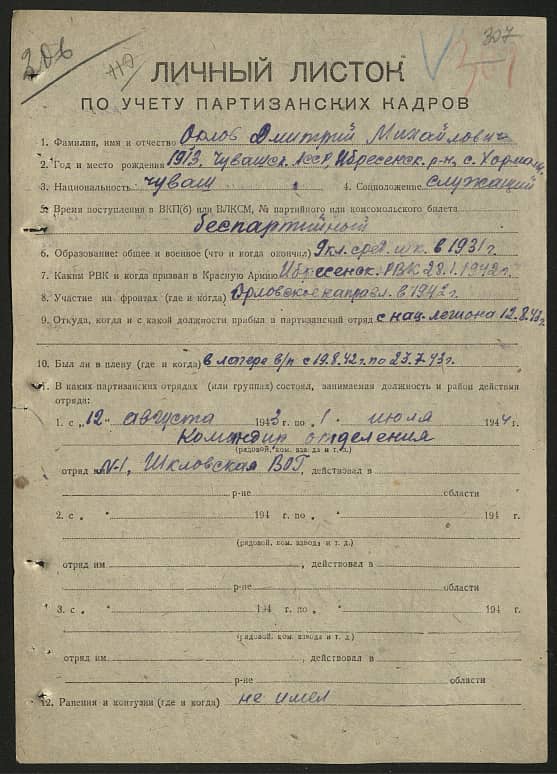 206
но
307
ЛИЧНЫЙ ЛИСТОК
ПО УЧЕТУ ПАРТИЗАНСКИХ КАДРОВ
1. Фамилия, имя и отчество Орлов Дмитрий Михайлович
2. Год и место рождения 1913, Чувашск. АССР, Ибресенск. р-н, с. Хормалы
3. Национальность чуваш 4. Соцположение служащий
5. Время поступления в ВКП(б) или ВЛКСМ, № партийного или комсомольского билета
беспартийный
6. Образование: общее и военное (что и когда окончил) 9 кл. сред. шк. в 1931 г.
7. Каким РВК и когда призван в Красную Армию Ибресенск. РВК 28.1.1942 г.
8. Участие на фронтах (где и когда) Орловское направл. в 1942 г.
9. Откуда, когда и с какой должности прибыл в партизанский отряд с нац. легиона 12.8.43 г.
10. Был ли в плену (где и когда) в лагере в/п с 19.8.42 г. по 23.7.43 г.
11. В каких партизанских отрядах (или группах) состоял, занимаемая должность и район действия
отряда:
1. с „12" августа 1943 г. по „1" июля 1944 г.
Командир отделения
(рядовой, ком. взвода и т. д.)
отряд им №1, Шкловская ВОГ, действовал в
р-не области
2. с „ " 194 г. по „ " 194 г.
(рядовой, ком. взвода и т. д.)
отряд им , действовал в
р-не области
3. с „ " 194 г. по „ " 194 г.
(рядовой, ком. взвода и т. д.)
отряд им , действовал в
р-не области
12. Ранения и контузии (где и когда) не имел